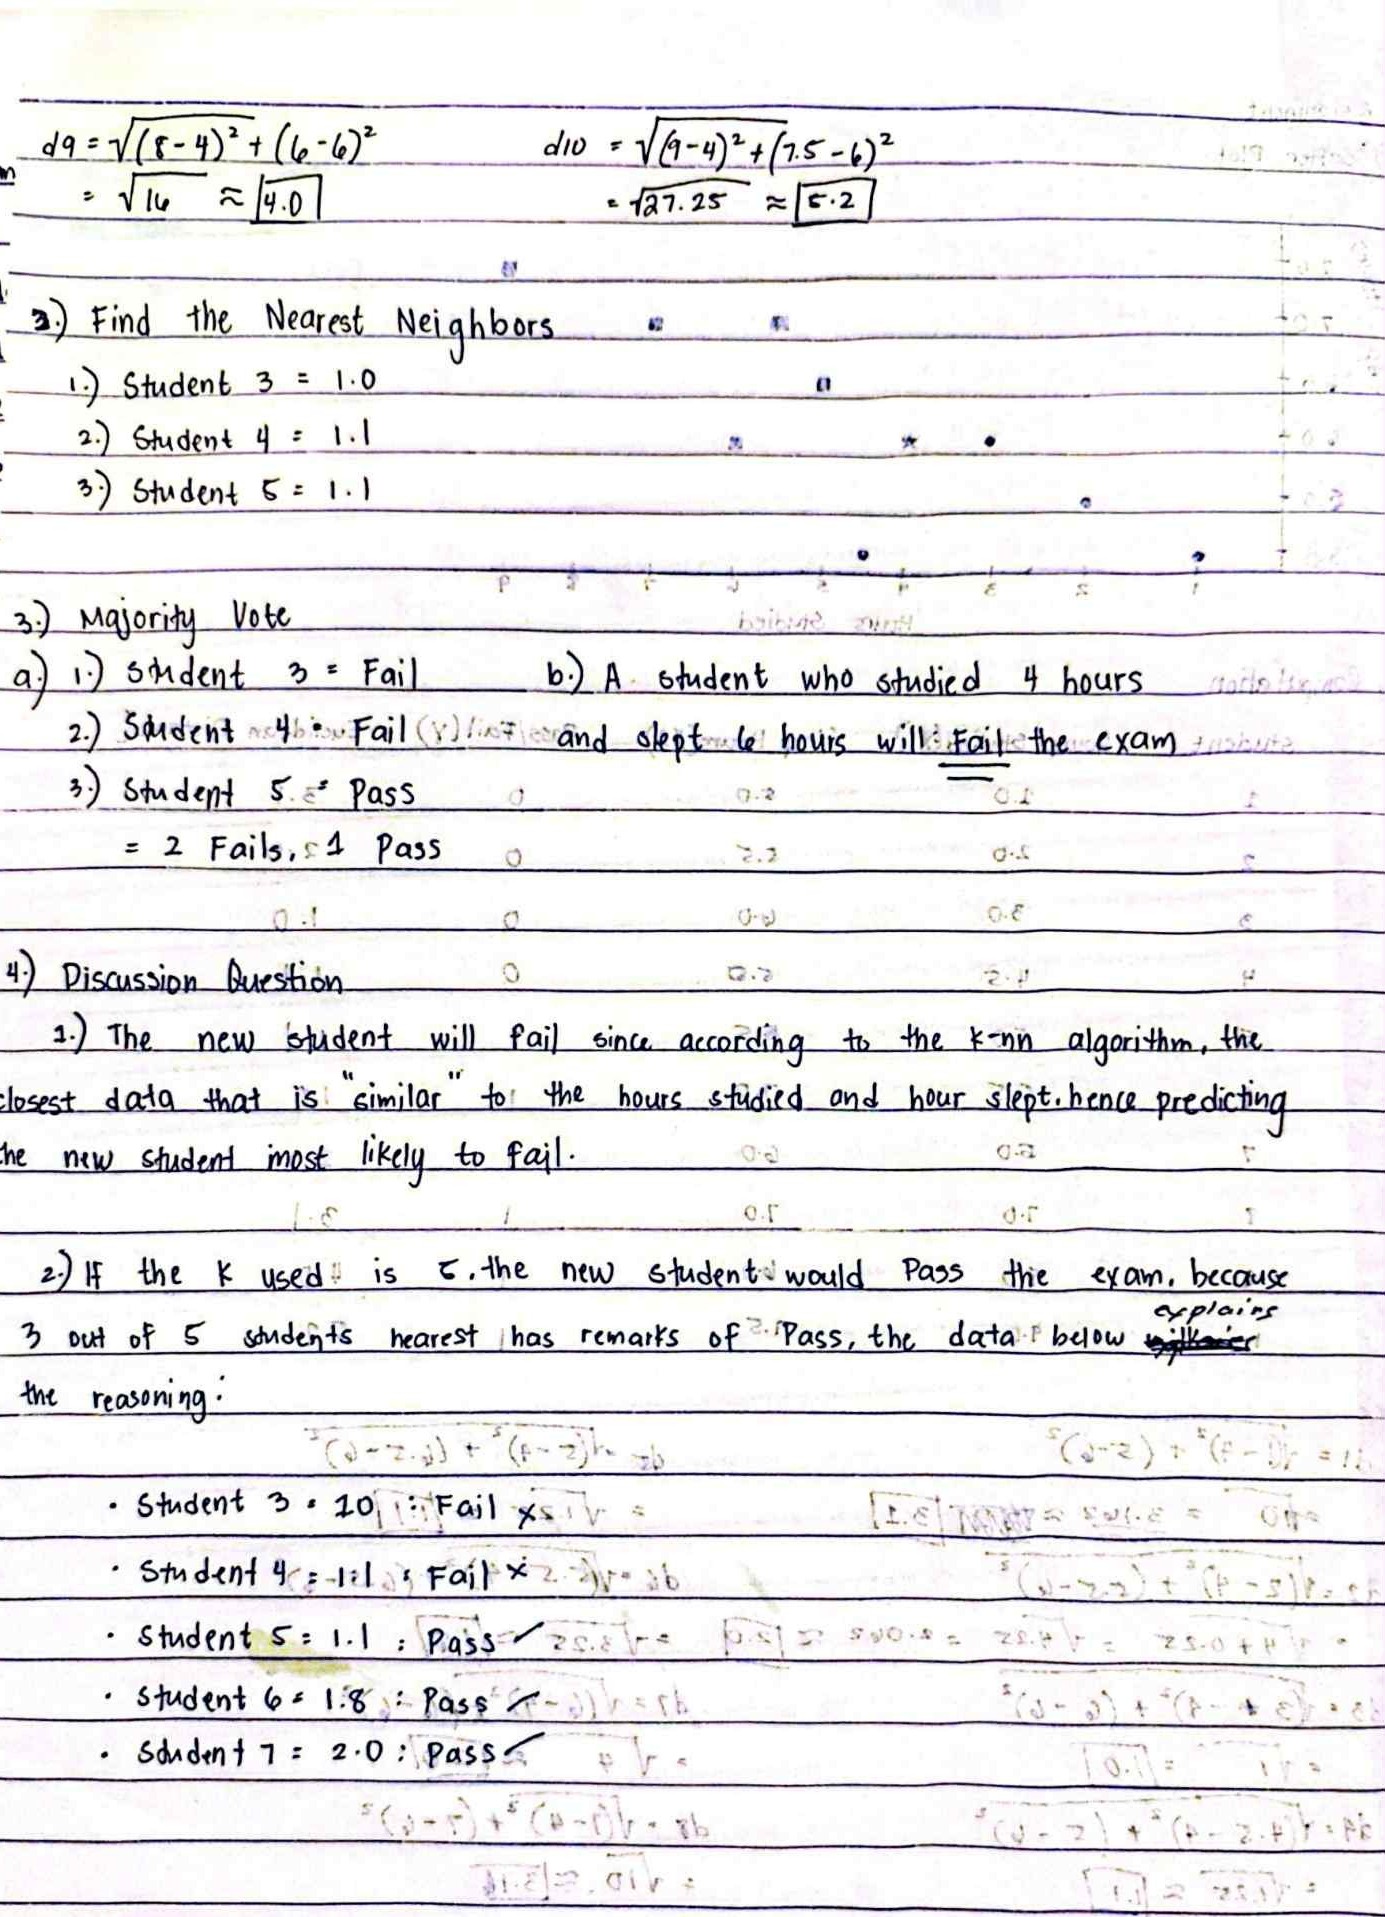 d9 = √(8-4)² + (6-6)²
= √16 ≈ 4.0
d10 = √(9-4)² + (7.5-6)²
= √27.25 ≈ 5.2
2.) Find the Nearest Neighbors
1.) Student 3 = 1.0
2.) Student 4 = 1.1
3.) Student 5 = 1.1
3.) Majority Vote
a.) 1.) Student 3 = Fail
2.) Student 4 = Fail
3.) Student 5 = Pass
= 2 Fails, 1 Pass
b.) A student who studied 4 hours
and slept 6 hours will Fail the exam
4.) Discussion Question
1.) The new student will fail since according to the k-nn algorithm, the
closest data that is "similar" to the hours studied and hour slept. hence predicting
the new student most likely to fail.
2.) If the K used is 5, the new student would Pass the exam, because
3 out of 5 students nearest has remarks of Pass, the data below explains
the reasoning:
• Student 3 = 10 : Fail x
• Student 4 = 1.1 : Fail x
• Student 5 = 1.1 : Pass ✓
• Student 6 = 1.8 : Pass ✓
• Student 7 = 2.0 : Pass ✓